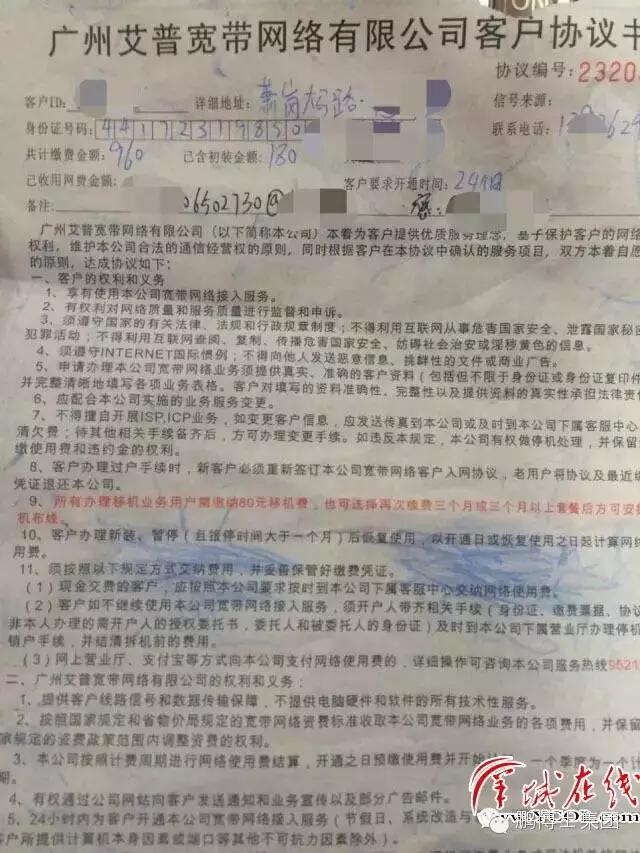 广州艾普宽带网络有限公司客户协议书
协议编号:2320
客户ID: 详细地址: 萧岗大马路 信号来源:
身份证号码: 4 4 1 7 2 3 1 9 8 5 0 联系电话:
共计缴费金额: 960 已含初装金额: 180
已收用网费金额: 客户要求开通时间: 24个月
备注: 06502730@
广州艾普宽带网络有限公司(以下简称本公司)本着为客户提供优质服务理念,基于保护客户的网络
权利,维护本公司合法的通信经营权的原则,同时根据客户在本协议中确认的服务项目,双方本着自愿
的原则,达成协议如下:
一、客户的权利和义务
1、享有使用本公司宽带网络接入服务。
2、有权利对网络质量和服务质量进行监督和申诉。
3、须遵守国家的有关法律、法规和行政规章制度;不得利用互联网从事危害国家安全、泄露国家秘密
犯罪活动;不得利用互联网查阅、复制、传播危害国家安全、妨碍社会治安或淫秽黄色的信息。
4、须遵守INTERNET国际惯例;不得向他人发送恶意信息、挑衅性的文件或商业广告。
5、申请办理本公司宽带网络业务须提供真实、准确的客户资料(包括但不限于身份证或身份证复印件
并完整清晰地填写各项业务表格。客户对填写的资料准确性、完整性以及提供资料的真实性承担法律责任
6、应配合本公司实施的业务服务变更。
7、不得擅自开展ISP,ICP业务,如变更客户信息,应发送传真到本公司或及时到本公司下属客服中心
清欠费;待其他相关手续备齐后,方可办理变更手续。如违反本规定,本公司有权做停机处理,并保留
缴使用费和违约金的权利。
8、客户办理过户手续时,新客户必须重新签订本公司宽带网络客户入网协议,老用户将协议及最近缴
凭证退还本公司。
9、所有办理移机业务用户需缴纳80元移机费,也可选择再次缴费三个月或三个月以上套餐后方可安排
机布线。
10、客户办理新装、暂停(且报停时间大于一个月)后恢复使用,以开通日或恢复使用之日起计算网络
用费。
11、须按照以下规定方式交纳费用,并妥善保管好缴费凭证。
(1)现金交费的客户,应按照本公司要求按时到本公司下属客服中心交纳网络使用费。
(2)客户如不继续使用本公司宽带网络接入服务,须开户人带齐相关手续(身份证、缴费票据、协议
非本人办理的需开户人的授权委托书,委托人和被委托人的身份证)及时到本公司下属营业厅办理停机
销户手续,并结清拆机前的费用。
(3)网上营业厅、支付宝等方式向本公司支付网络使用费的,详细操作可咨询本公司服务热线9521
二、广州艾普宽带网络有限公司的权利和义务:
1、提供客户线路信号和数据传输保障,不提供电脑硬件和软件的所有技术性服务。
2、按照国家规定和省物价局规定的宽带网络资费标准收取本公司宽带网络业务的各项费用,并保留
家规定的资费政策范围内调整资费的权利。
3、本公司按照计费周期进行网络使用费结算,开通之日预缴使用费并开始计 一个季度为一个计
期。
4、有权通过公司网站向客户发送通知和业务宣传以及部分广告邮件。
5、24小时内为客户开通本公司宽带网络接入服务(节假日、系统改造与
客户所提供计算机本身因素或端口等其他不可抗力因素除外)。
羊城在线
鹏博士集团